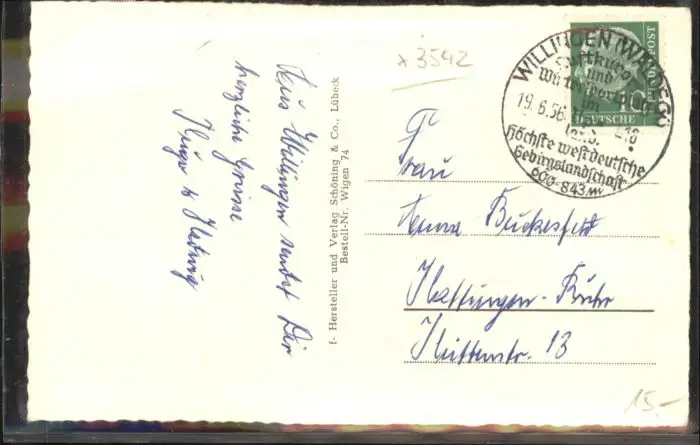 Aus Willingen sendet Dir
herzliche Grüsse
x 3542
f- Hersteller und Verlag Schöning & Co., Lübeck
Bestell-Nr. Wigen 74
WILLINGEN (WALDECK)
Luftkurort
und
Wintersportplatz
im
19.6.56.
-18
Höchste westdeutsche
Gebirgslandschaft
600-843 m
DEUTSCHE
BUNDESPOST
10
Frau
Anna
Hattingen-Ruhr
Hüttenstr. 13
15.-